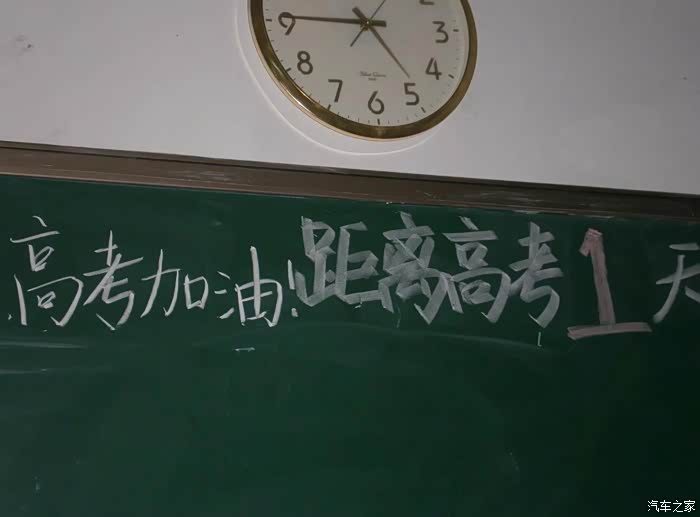 2
3
4
5
6
7
8
9
高考加油!距离高考1天
汽车之家